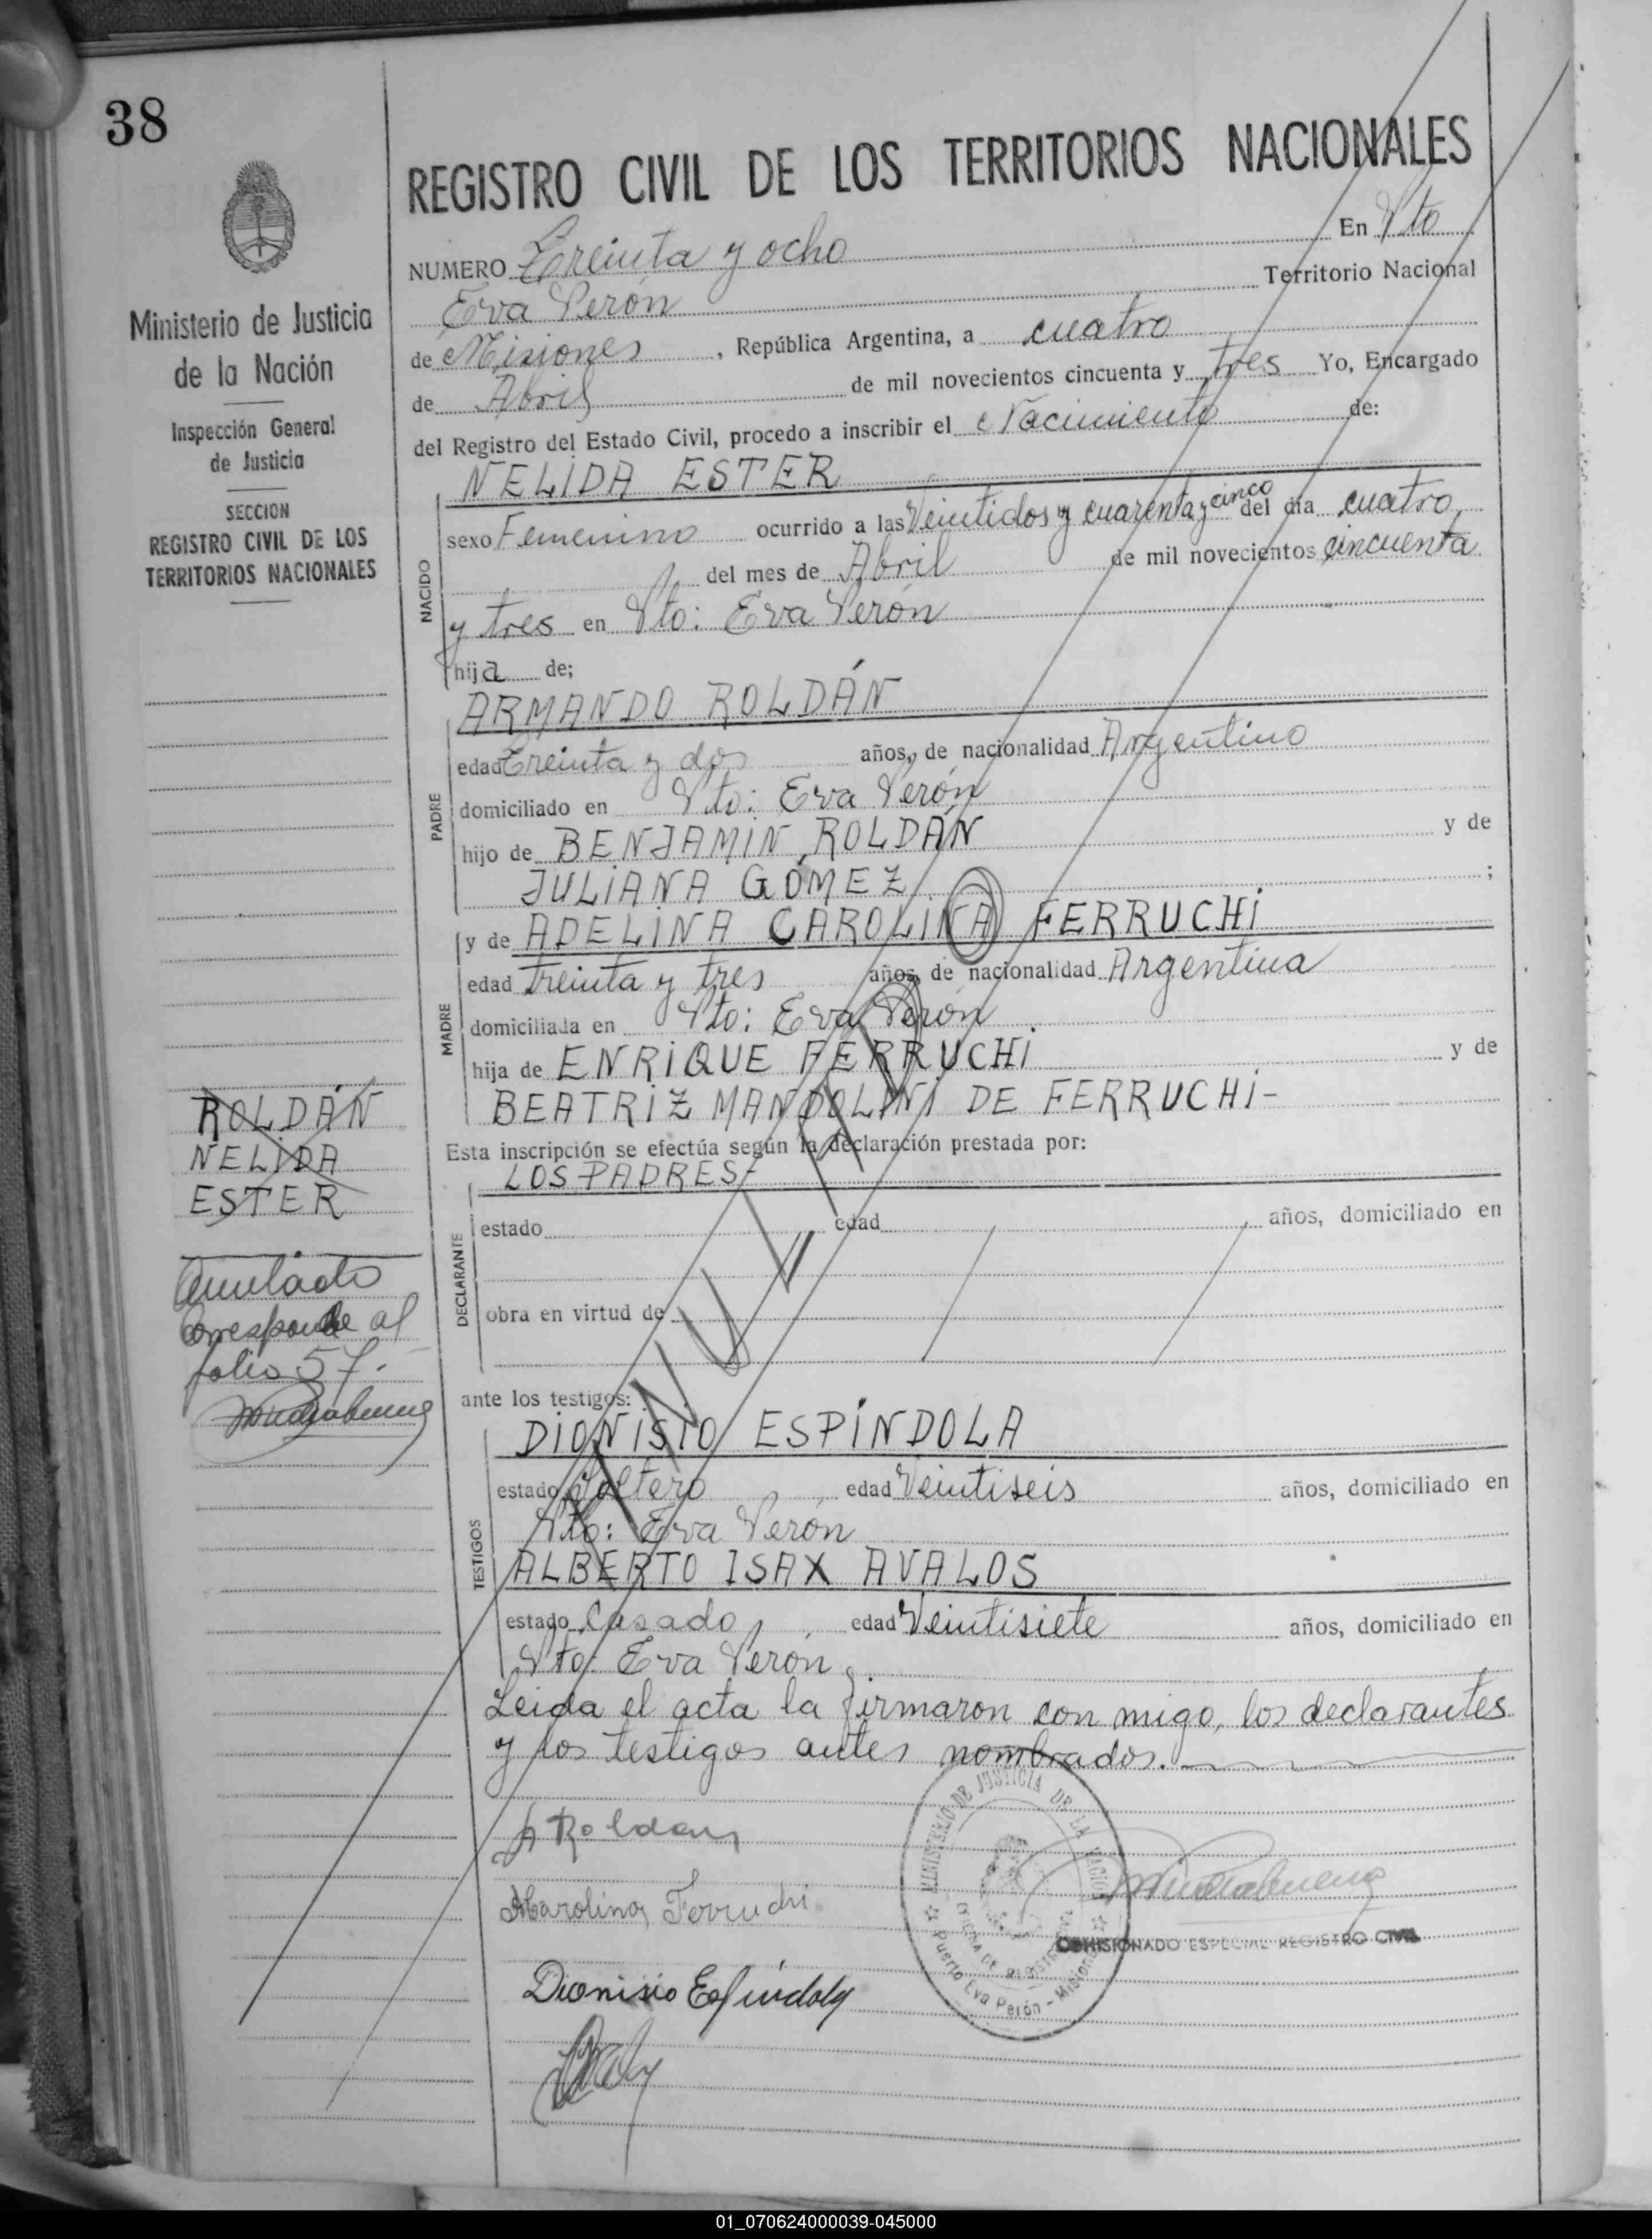 38
REGISTRO CIVIL DE LOS TERRITORIOS NACIONALES
NUMERO Treinta y ocho En Pto
Eva Perón Territorio Nacional
de Misiones, República Argentina, a cuatro
de Abril de mil novecientos cincuenta y tres Yo, Encargado
del Registro del Estado Civil, procedo a inscribir el Nacimiento de:
Ministerio de Justicia
de la Nación
Inspección General
de Justicia
SECCION
REGISTRO CIVIL DE LOS
TERRITORIOS NACIONALES
NACIDO
NELIDA ESTER
sexo Femenino ocurrido a las Veintidos y cuarenta y cinco del día cuatro
del mes de Abril de mil novecientos cincuenta
y tres en Pto: Eva Perón
hija de;
PADRE
ARMANDO ROLDÁN
edad Treinta y dos años, de nacionalidad Argentino
domiciliado en Pto: Eva Perón
hijo de BENJAMIN ROLDÁN y de
JULIANA GÓMEZ ;
MADRE
y de ADELINA CAROLINA FERRUCHI
edad treinta y tres años, de nacionalidad Argentina
domiciliada en Pto: Eva Perón
hija de ENRIQUE FERRUCHI y de
BEATRIZ MANDOLINI DE FERRUCHI-
Esta inscripción se efectúa según la declaración prestada por:
DECLARANTE
LOS PADRES
estado edad años, domiciliado en
obra en virtud de
ANULADO
ROLDÁN
NELIDA
ESTER
Anulado
Corresponde al
folio 57.
ante los testigos:
TESTIGOS
DIONISIO ESPÍNDOLA
estado Soltero edad Veintiseis años, domiciliado en
Pto: Eva Perón
ALBERTO ISAX AVALOS
estado Casado edad Veintisiete años, domiciliado en
Pto: Eva Perón.
Leida el acta la firmaron con migo, los declarantes
y los testigos antes nombrados.
A Roldan
ACarolina Ferruchi
MINISTERIO DE JUSTICIA DE LA NACION
OFICINA DE REGISTRO CIVIL
Puerto Eva Perón - Misiones
COMISIONADO ESPECIAL REGISTRO CIVIL
Dionisio Espindola
01_070624000039-045000